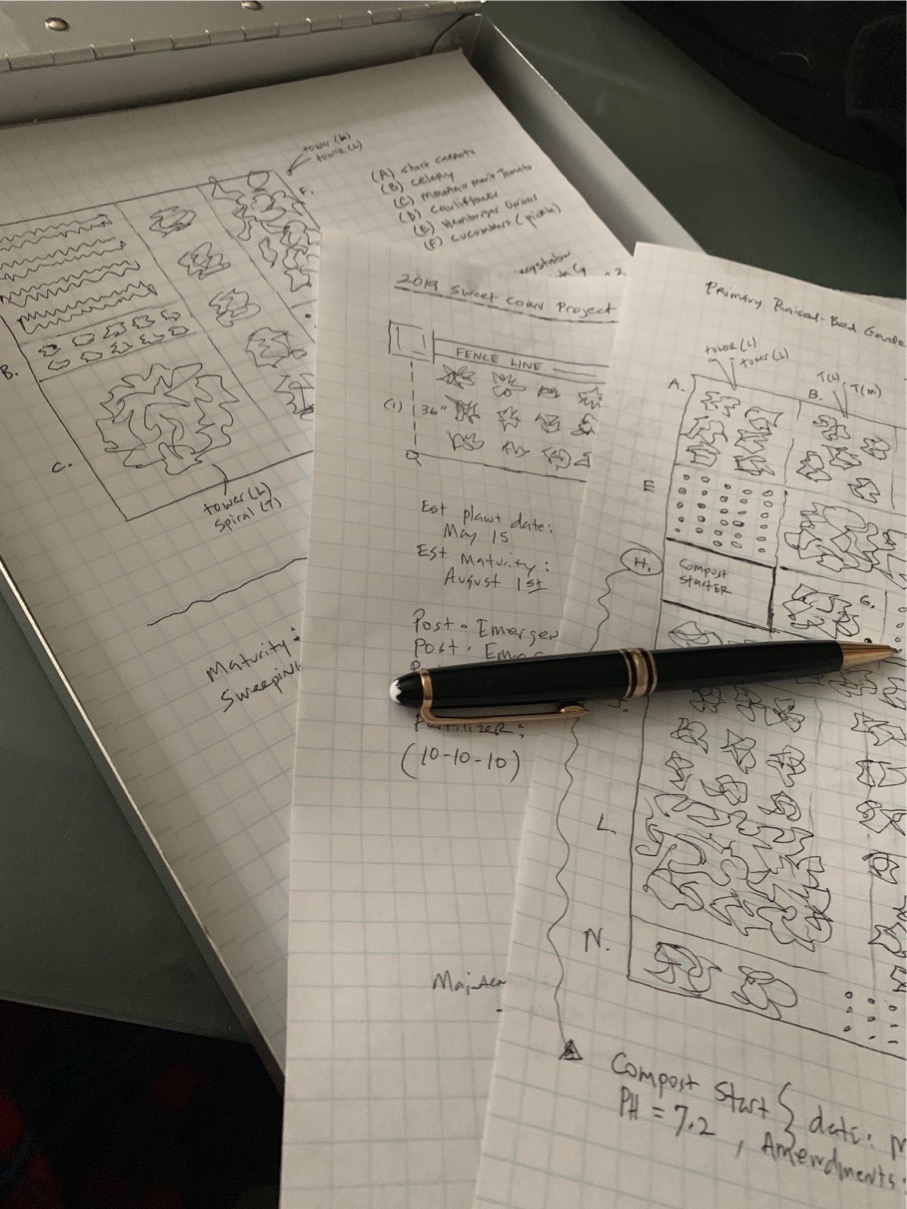 tower (L)
F.
(A) short carrots
(B) celery
(C) Mountain merit Tomato
(D) cauliflower
(E) Hamburger Onions
(F) cucumbers (pickle)
B.
C.
tower (L)
Spiral (T)
Maturity:
Sweeping
2019 Sweet Corn Project
FENCE LINE
(1) 36"
Est plant date:
May 15
Est Maturity:
August 1st
Post - Emergen
Post - Emer
(10-10-10)
Primary Raised-Bed Garde
tower (L)
tower (L)
T(L), T(M)
A.
B.
E
H.
Compost
Starter
G.
L.
N.
Compost Start } date:
PH = 7.2 , Amendments: